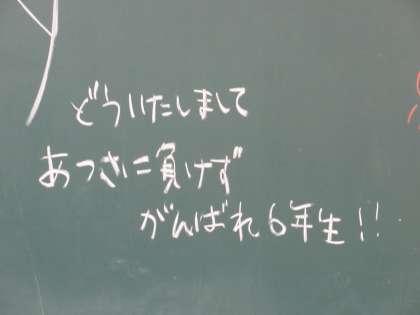 どういたしまして
あつさに負けず
がんばれ6年生!!